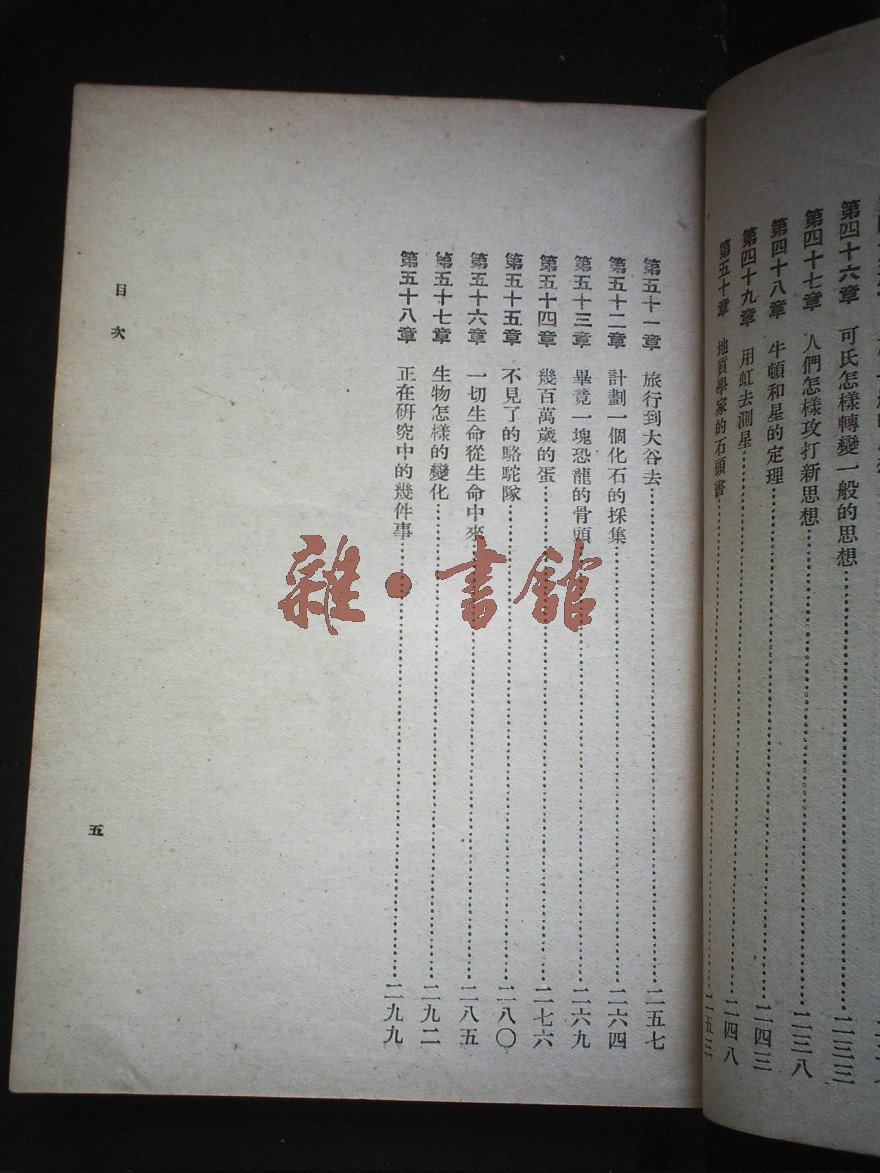 第四十六章 可氏怎樣轉變一般的思想……二三三
第四十七章 人們怎樣攻打新思想……二三八
第四十八章 牛頓和星的定理……二四三
第四十九章 用虹去測星……二四八
第五十章 地質學家的石頭書……二五三
第五十一章 旅行到大谷去……二五七
第五十二章 計劃一個化石的採集……二六四
第五十三章 畢竟一塊恐龍的骨頭……二六九
第五十四章 幾百萬歲的蛋……二七六
第五十五章 不見了的駱駝隊……二八〇
第五十六章 一切生命從生命中來……二八五
第五十七章 生物怎樣的變化……二九二
第五十八章 正在研究中的幾件事……二九九
目次
五
雜·書館